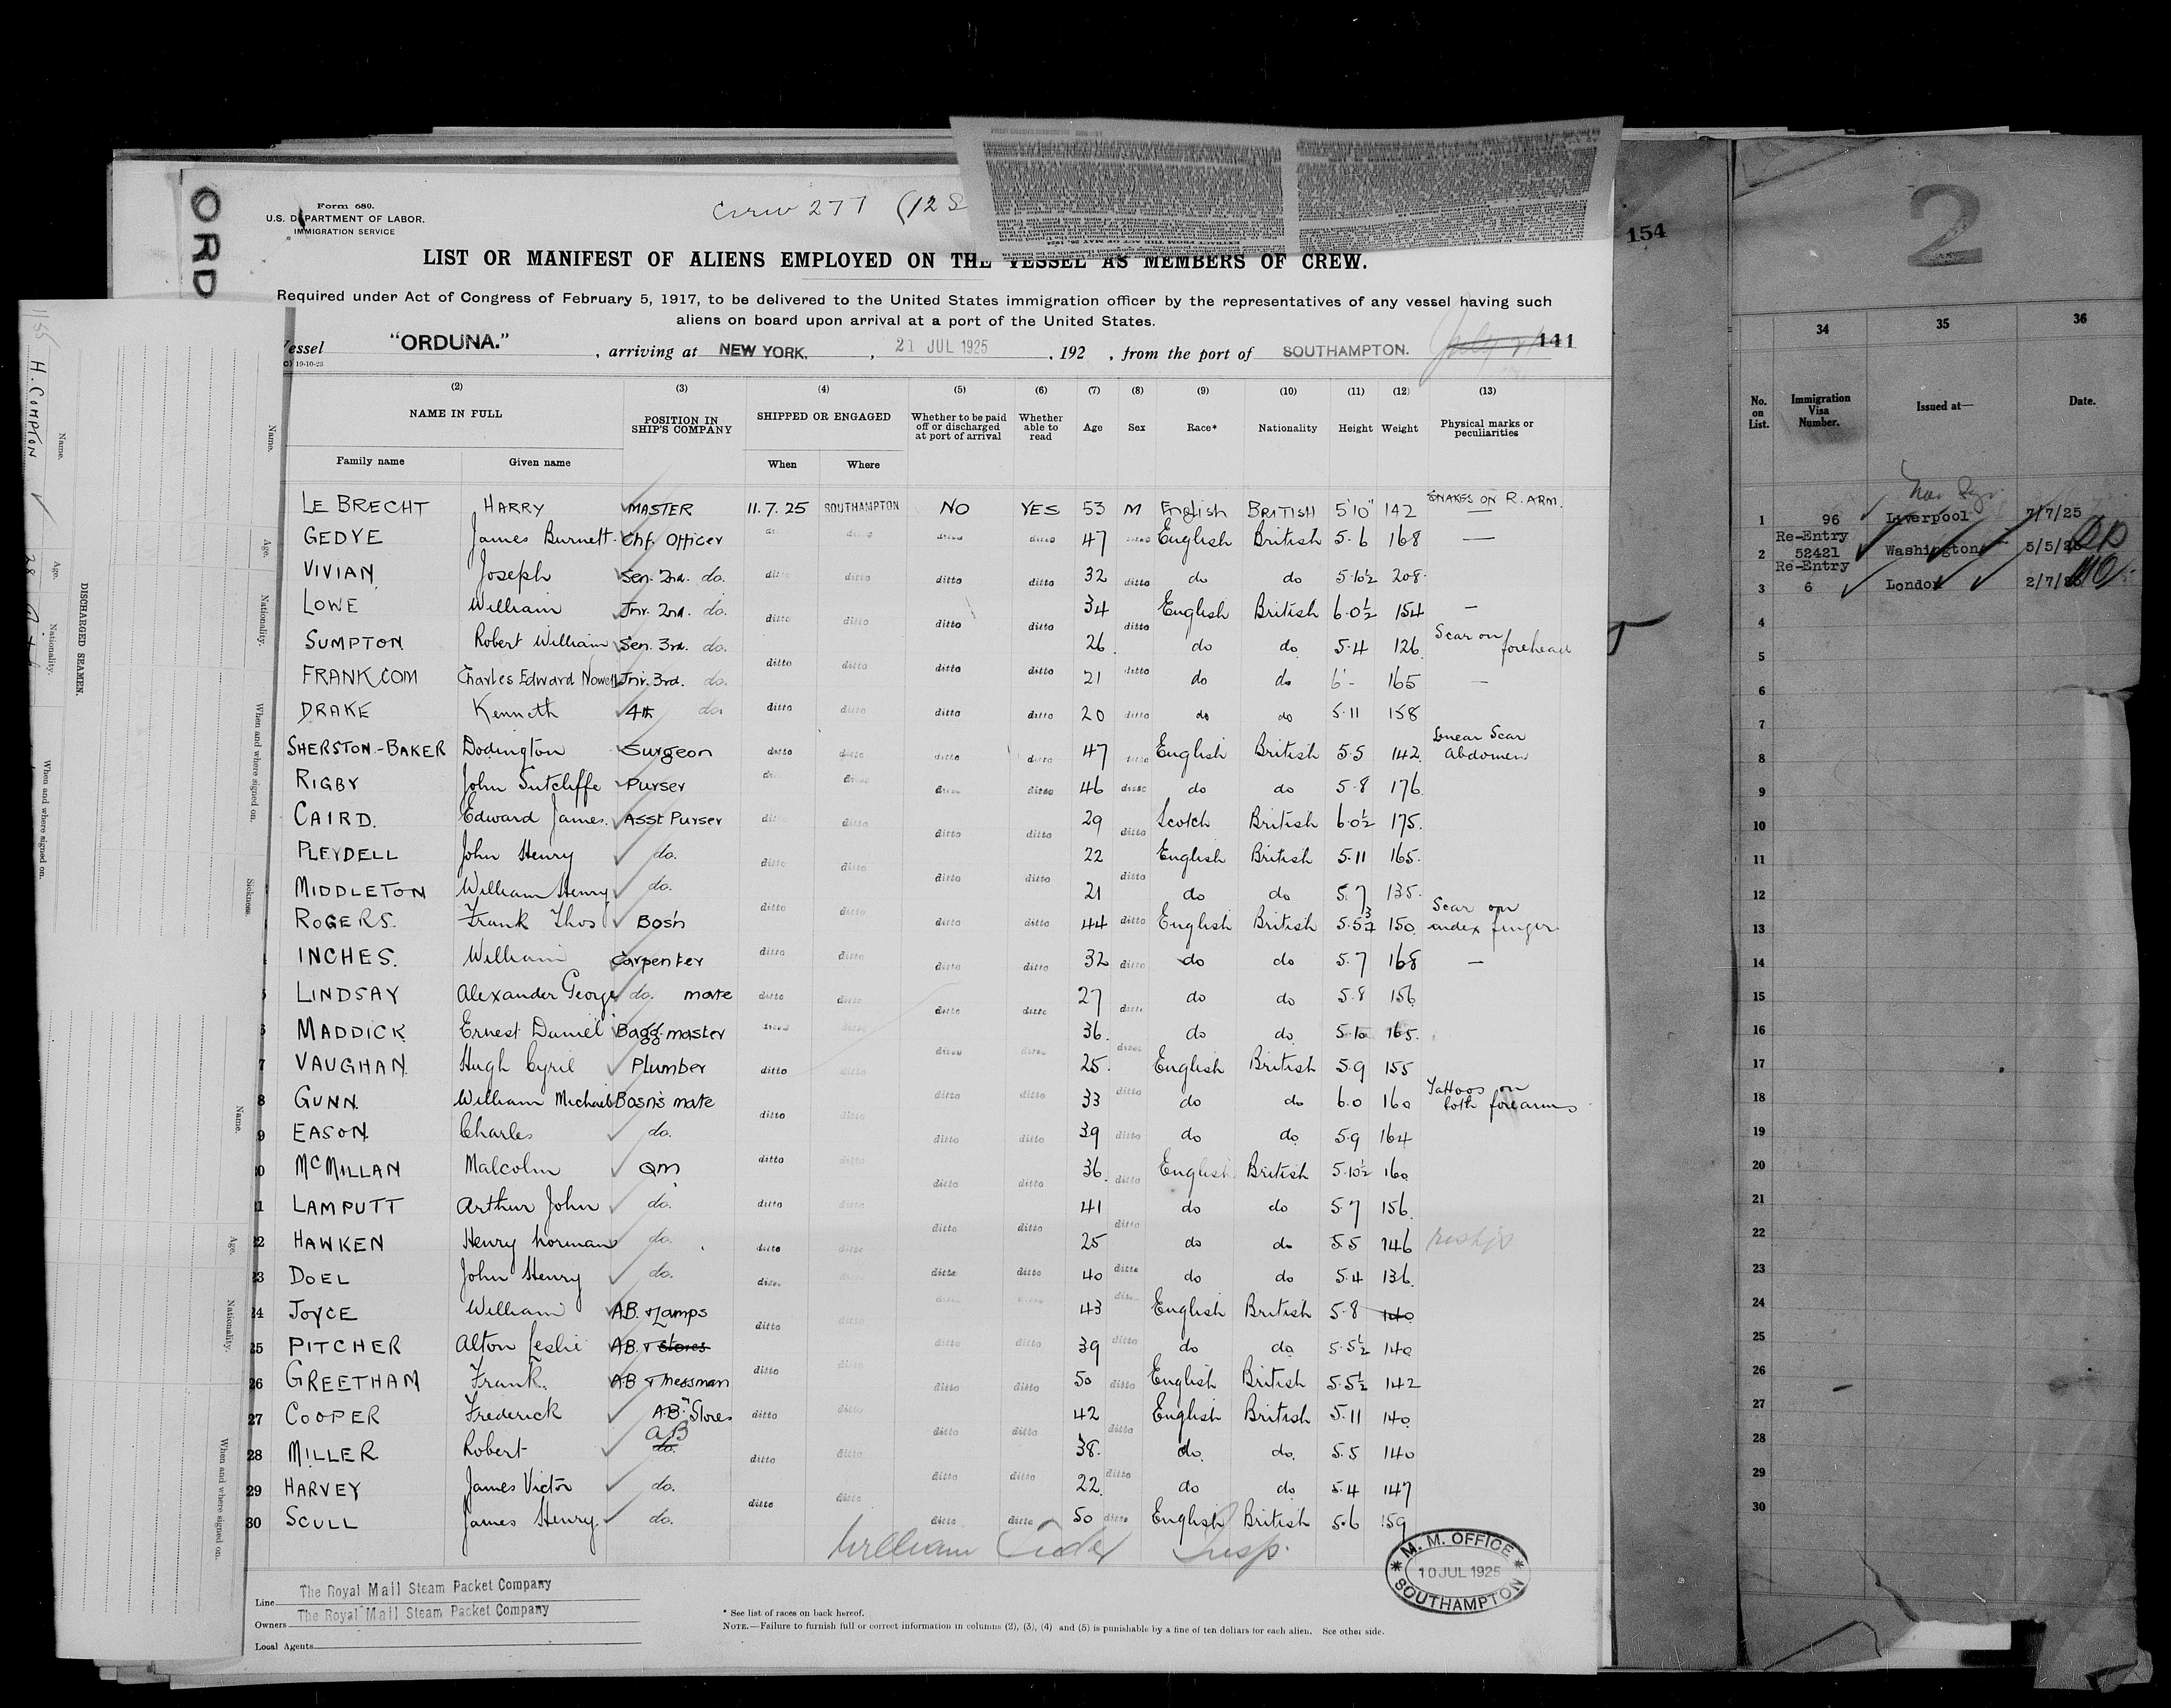 ORD
Form 680.
U.S. DEPARTMENT OF LABOR.
IMMIGRATION SERVICE
Crew 277 (12 S
LIST OR MANIFEST OF ALIENS EMPLOYED ON THE VESSEL AS MEMBERS OF CREW.
Required under Act of Congress of February 5, 1917, to be delivered to the United States immigration officer by the representatives of any vessel having such
aliens on board upon arrival at a port of the United States.
Vessel "ORDUNA." , arriving at NEW YORK. , 21 JUL 1925 , 192 , from the port of SOUTHAMPTON. 141
19-10-23
(2) (3) (4) (5) (6) (7) (8) (9) (10) (11) (12) (13)
NAME IN FULL POSITION IN SHIP'S COMPANY SHIPPED OR ENGAGED Whether to be paid off or discharged at port of arrival Whether able to read Age Sex Race* Nationality Height Weight Physical marks or peculiarities
Family name Given name When Where
LE BRECHT HARRY MASTER 11.7.25 SOUTHAMPTON NO YES 53 M English BRITISH 5'10" 142 SNAKES ON R. ARM.
GEDYE James Burnett Chf. Officer ditto 47 ditto English British 5.6 168 —
VIVIAN Joseph Sen. 2nd. do. ditto ditto ditto ditto 32 ditto do do 5.10½ 208
LOWE William Jnr. 2nd. do. ditto ditto ditto ditto 34 ditto English British 6.0½ 154 —
SUMPTON Robert William Sen. 3rd. do. 26 do do 5.4 126 Scar on forehead
FRANKCOM Charles Edward Nowell Jnr. 3rd. do. ditto ditto ditto ditto 21 ditto do do 6'- 165 —
DRAKE Kenneth 4th do. ditto ditto ditto ditto 20 ditto do do 5.11 158
SHERSTON-BAKER Dodington Surgeon ditto ditto ditto ditto 47 ditto English British 5.5 142 Linear Scar Abdomen
RIGBY John Sutcliffe Purser ditto ditto ditto ditto 46 ditto do do 5.8 176
CAIRD. Edward James. Asst Purser ditto ditto ditto ditto 29 ditto Scotch British 6.0½ 175.
PLEYDELL John Henry do. ditto ditto ditto ditto 22 ditto English British 5.11 165.
MIDDLETON William Henry do. 21 do do 5.7 135.
ROGERS. Frank Thos Bosn ditto ditto ditto ditto 44 ditto English British 5.5¾ 150 Scar on index finger
INCHES. William Carpenter ditto ditto ditto ditto 32 ditto do do 5.7 168 —
LINDSAY Alexander George do. mate ditto ditto ditto ditto 27 ditto do do 5.8 156
MADDICK Ernest Daniel Bagg. master ditto ditto ditto ditto 36. ditto do do 5.10 165.
7 VAUGHAN Hugh Cyril Plumber ditto ditto 25. English British 5.9 155
8 GUNN. William Michael Bosn's mate ditto ditto ditto 33 ditto do do 6.0 160 Tattoos on both forearms
9 EASON. Charles do. ditto ditto 39 ditto do do 5.9 164
McMILLAN Malcolm QM ditto ditto ditto ditto 36. ditto English British 5.10½ 160
LAMPUTT Arthur John do. ditto ditto 41 do do 5.7 156.
HAWKEN Henry Norman do. ditto ditto ditto ditto 25 ditto do do 5.5 146
DOEL John Henry do. ditto ditto ditto 40 ditto do do 5.4 136.
24 JOYCE William AB. & Lamps ditto ditto 43 ditto English British 5.8 140
25 PITCHER Alton Leslie AB. & Stores ditto ditto 39 ditto do do 5.5½ 140
26 GREETHAM Frank. AB & Messman ditto ditto ditto ditto 50 ditto English British 5.5½ 142
27 COOPER Frederick A.B. "Stores ditto ditto 42 English British 5.11 140
28 MILLER Robert AB do. ditto ditto ditto ditto 38. ditto do do 5.5 140
29 HARVEY James Victor do. ditto ditto 22. ditto do do 5.4 147
30 SCULL James Henry. do. ditto ditto ditto ditto 50 ditto English British 5.6 159
William Insp.
M. M. OFFICE
10 JUL 1925
SOUTHAMPTON
Line The Royal Mail Steam Packet Company
Owners The Royal Mail Steam Packet Company
Local Agents
* See list of races on back hereof.
NOTE.—Failure to furnish full or correct information in columns (2), (3), (4) and (5) is punishable by a fine of ten dollars for each alien. See other side.
H. COMPTON
28
Name.
Age.
Nationality.
When and where signed on.
DISCHARGED SEAMEN.
Name.
Age.
Nationality.
When and where signed on.
Sickness.
Name.
Age.
Nationality.
When and where signed on.
154
2
34 35 36
No. on List. Immigration Visa Number. Issued at— Date.
1 96 Liverpool 7/7/25
Re-Entry
2 52421 Washington 5/5/25
Re-Entry
3 6 London 2/7/25
4
5
6
7
8
9
10
11
12
13
14
15
16
17
18
19
20
21
22
23
24
25
26
27
28
29
30